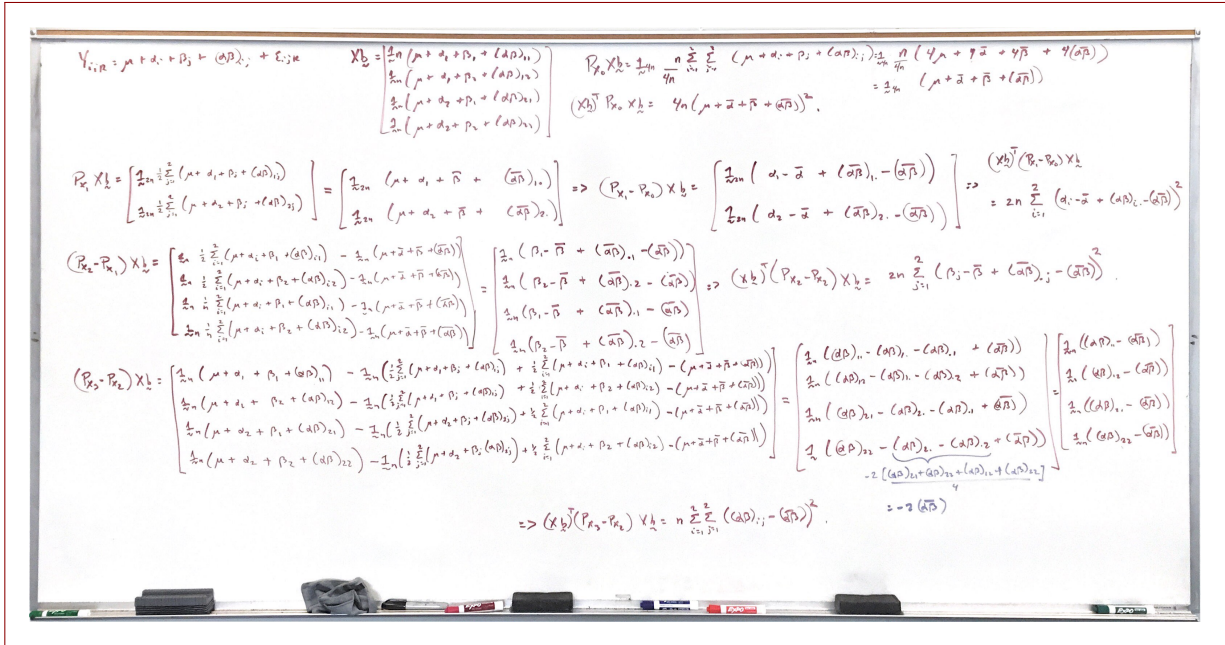 Y_{ijk} = μ + α_i + β_j + (αβ)_{ij} + ε_{ijk}
X b = [ 1_n (μ + α_1 + β_1 + (αβ)_{11})
1_n (μ + α_1 + β_2 + (αβ)_{12})
1_n (μ + α_2 + β_1 + (αβ)_{21})
1_n (μ + α_2 + β_2 + (αβ)_{22}) ]
P_{X_0} X b = 1_{4n} n/4n Σ_{i=1}^2 Σ_{j=1}^2 (μ + α_i + β_j + (αβ)_{ij}) = 1_{4n} n/4n (4μ + 4ᾱ + 4β̄ + 4(αβ)̄)
= 1_{4n} (μ + ᾱ + β̄ + (αβ)̄)
(Xb)^T P_{X_0} X b = 4n (μ + ᾱ + β̄ + (αβ)̄)^2.
P_{X_1} X b = [ 1_{2n} 1/2 Σ_{j=1}^2 (μ + α_1 + β_j + (αβ)_{1j})
1_{2n} 1/2 Σ_{j=1}^2 (μ + α_2 + β_j + (αβ)_{2j}) ]
= [ 1_{2n} (μ + α_1 + β̄ + (αβ)̄_{1.})
1_{2n} (μ + α_2 + β̄ + (αβ)̄_{2.}) ]
=> (P_{X_1} - P_{X_0}) X b = [ 1_{2n} (α_1 - ᾱ + (αβ)̄_{1.} - (αβ)̄)
1_{2n} (α_2 - ᾱ + (αβ)̄_{2.} - (αβ)̄) ]
=> (Xb)^T (P_{X_1} - P_{X_0}) X b
= 2n Σ_{i=1}^2 (α_i - ᾱ + (αβ)̄_{i.} - (αβ)̄)^2
(P_{X_2} - P_{X_1}) X b = [ 1_n 1/2 Σ_{i=1}^2 (μ + α_i + β_1 + (αβ)_{i1}) - 1_n (μ + ᾱ + β̄ + (αβ)̄)
1_n 1/2 Σ_{i=1}^2 (μ + α_i + β_2 + (αβ)_{i2}) - 1_n (μ + ᾱ + β̄ + (αβ)̄)
1_n 1/n Σ_{i=1}^2 (μ + α_i + β_1 + (αβ)_{i1}) - 1_n (μ + ᾱ + β̄ + (αβ)̄)
1_n 1/n Σ_{i=1}^2 (μ + α_i + β_2 + (αβ)_{i2}) - 1_n (μ + ᾱ + β̄ + (αβ)̄) ]
= [ 1_n (β_1 - β̄ + (αβ)̄_{.1} - (αβ)̄)
1_n (β_2 - β̄ + (αβ)̄_{.2} - (αβ)̄)
1_n (β_1 - β̄ + (αβ)̄_{.1} - (αβ)̄)
1_n (β_2 - β̄ + (αβ)̄_{.2} - (αβ)̄) ]
=> (Xb)^T (P_{X_2} - P_{X_2}) X b = 2n Σ_{j=1}^2 (β_j - β̄ + (αβ)̄_{.j} - (αβ)̄)^2.
(P_{X_3} - P_{X_2}) X b = [ 1_n (μ + α_1 + β_1 + (αβ)_{11}) - 1_n (1/2 Σ_{j=1}^2 (μ + α_1 + β_j + (αβ)_{1j}) + 1/2 Σ_{i=1}^2 (μ + α_i + β_1 + (αβ)_{i1}) - (μ + ᾱ + β̄ + (αβ)̄))
1_n (μ + α_1 + β_2 + (αβ)_{12}) - 1_n (1/2 Σ_{j=1}^2 (μ + α_1 + β_j + (αβ)_{1j}) + 1/2 Σ_{i=1}^2 (μ + α_i + β_2 + (αβ)_{i2}) - (μ + ᾱ + β̄ + (αβ)̄))
1_n (μ + α_2 + β_1 + (αβ)_{21}) - 1_n (1/2 Σ_{j=1}^2 (μ + α_2 + β_j + (αβ)_{2j}) + 1/2 Σ_{i=1}^2 (μ + α_i + β_1 + (αβ)_{i1}) - (μ + ᾱ + β̄ + (αβ)̄))
1_n (μ + α_2 + β_2 + (αβ)_{22}) - 1_n (1/2 Σ_{j=1}^2 (μ + α_2 + β_j (αβ)_{2j}) + 1/2 Σ_{i=1}^2 (μ + α_i + β_2 + (αβ)_{i2}) - (μ + ᾱ + β̄ + (αβ)̄)) ]
= [ 1_n ((αβ)_{11} - (αβ)_{1.} - (αβ)_{.1} + (αβ)̄)
1_n ((αβ)_{12} - (αβ)_{1.} - (αβ)_{.2} + (αβ)̄)
1_n ((αβ)_{21} - (αβ)_{2.} - (αβ)_{.1} + (αβ)̄)
1_n ((αβ)_{22} - (αβ)_{2.} - (αβ)_{.2} + (αβ)̄) ]
= [ 1_n ((αβ)_{11} - (αβ)̄)
1_n ((αβ)_{12} - (αβ)̄)
1_n ((αβ)_{21} - (αβ)̄)
1_n ((αβ)_{22} - (αβ)̄) ]
-2 [(αβ)_{21} + (αβ)_{22} + (αβ)_{12} + (αβ)_{22}] / 4
= -2 (αβ)̄
=> (Xb)^T (P_{X_3} - P_{X_2}) X b = n Σ_{i=1}^2 Σ_{j=1}^2 ((αβ)_{ij} - (αβ)̄)^2.
EXPO
EXPO
EXPO